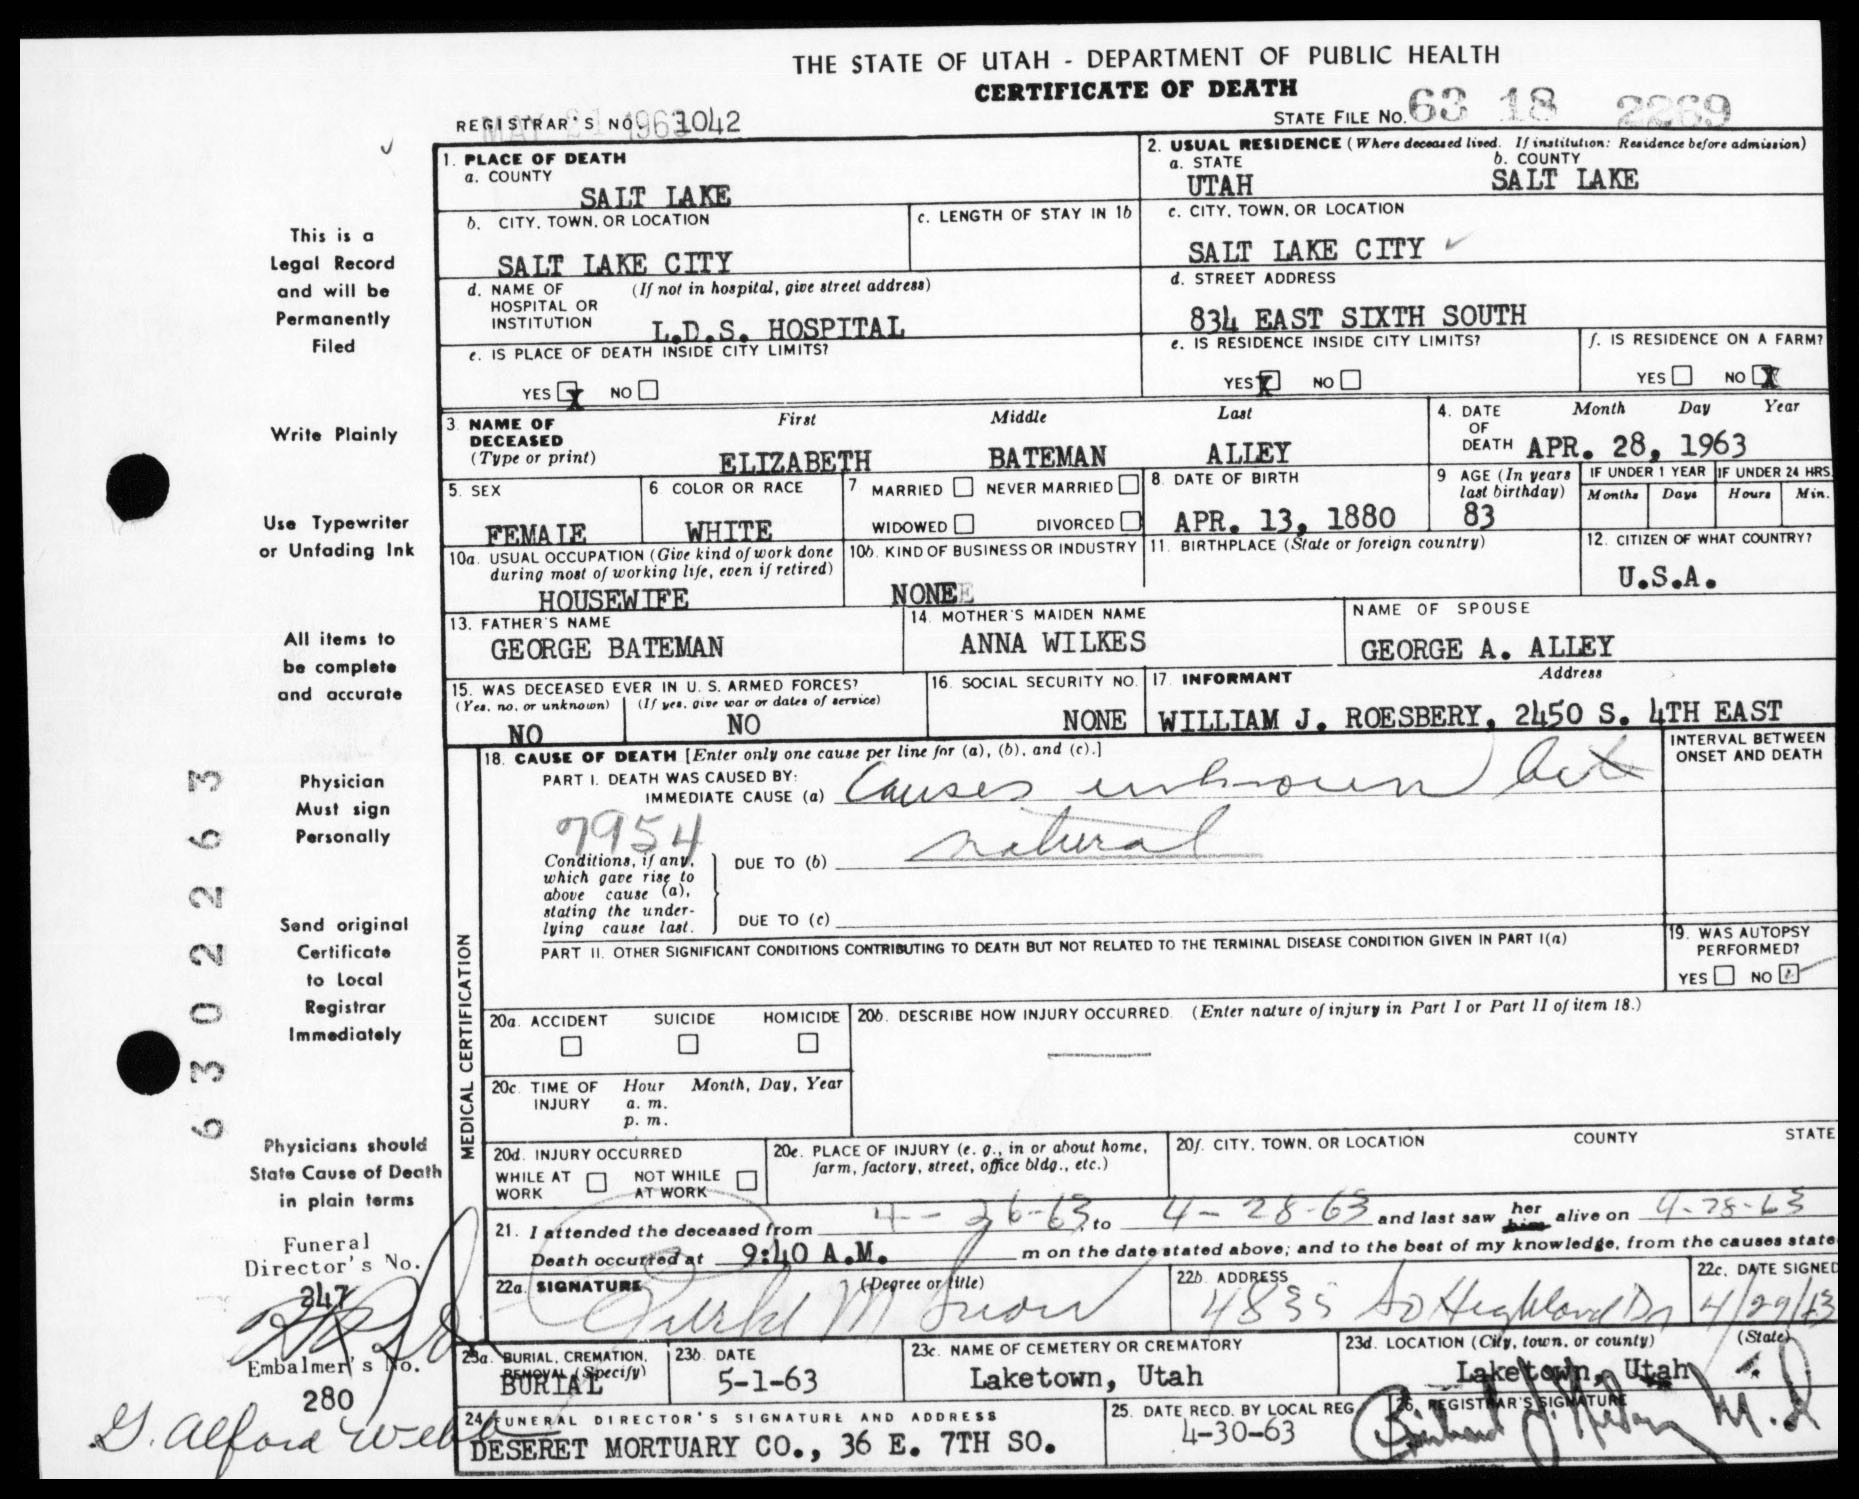 THE STATE OF UTAH - DEPARTMENT OF PUBLIC HEALTH
CERTIFICATE OF DEATH
REGISTRAR'S NO. 1042
MAY 21 1963
STATE FILE NO. 63 18 2269
This is a
Legal Record
and will be
Permanently
Filed
Write Plainly
Use Typewriter
or Unfading Ink
All items to
be complete
and accurate
Physician
Must sign
Personally
Send original
Certificate
to Local
Registrar
Immediately
Physicians should
State Cause of Death
in plain terms
Funeral
Director's No.
247
Embalmer's No.
280
G. Alford Webb
6302263
1. PLACE OF DEATH
a. COUNTY
SALT LAKE
b. CITY, TOWN, OR LOCATION
SALT LAKE CITY
c. LENGTH OF STAY IN 1b
d. NAME OF HOSPITAL OR INSTITUTION (If not in hospital, give street address)
L.D.S. HOSPITAL
e. IS PLACE OF DEATH INSIDE CITY LIMITS?
YES X NO
2. USUAL RESIDENCE (Where deceased lived. If institution: Residence before admission)
a. STATE
UTAH
b. COUNTY
SALT LAKE
c. CITY, TOWN, OR LOCATION
SALT LAKE CITY
d. STREET ADDRESS
834 EAST SIXTH SOUTH
e. IS RESIDENCE INSIDE CITY LIMITS?
YES X NO
f. IS RESIDENCE ON A FARM?
YES NO X
3. NAME OF DECEASED (Type or print)
First Middle Last
ELIZABETH BATEMAN ALLEY
4. DATE OF DEATH Month Day Year
APR. 28, 1963
5. SEX
FEMALE
6 COLOR OR RACE
WHITE
7 MARRIED NEVER MARRIED
WIDOWED DIVORCED
8. DATE OF BIRTH
APR. 13, 1880
9 AGE (In years last birthday)
83
IF UNDER 1 YEAR
Months Days
IF UNDER 24 HRS.
Hours Min.
10a. USUAL OCCUPATION (Give kind of work done during most of working life, even if retired)
HOUSEWIFE
10b. KIND OF BUSINESS OR INDUSTRY
NONE
11. BIRTHPLACE (State or foreign country)
12. CITIZEN OF WHAT COUNTRY?
U.S.A.
13. FATHER'S NAME
GEORGE BATEMAN
14. MOTHER'S MAIDEN NAME
ANNA WILKES
NAME OF SPOUSE
GEORGE A. ALLEY
15. WAS DECEASED EVER IN U. S. ARMED FORCES?
(Yes, no, or unknown) (If yes, give war or dates of service)
NO NO
16. SOCIAL SECURITY NO.
NONE
17. INFORMANT Address
WILLIAM J. ROESBERY, 2450 S. 4TH EAST
MEDICAL CERTIFICATION
18. CAUSE OF DEATH [Enter only one cause per line for (a), (b), and (c).]
PART I. DEATH WAS CAUSED BY:
IMMEDIATE CAUSE (a) Causes unknown but
natural
7954
Conditions, if any,
which gave rise to
above cause (a),
stating the under-
lying cause last.
DUE TO (b)
DUE TO (c)
INTERVAL BETWEEN
ONSET AND DEATH
PART II. OTHER SIGNIFICANT CONDITIONS CONTRIBUTING TO DEATH BUT NOT RELATED TO THE TERMINAL DISEASE CONDITION GIVEN IN PART I(a)
19. WAS AUTOPSY
PERFORMED?
YES NO
20a. ACCIDENT SUICIDE HOMICIDE
20b. DESCRIBE HOW INJURY OCCURRED. (Enter nature of injury in Part I or Part II of item 18.)
20c. TIME OF INJURY Hour Month, Day, Year
a. m.
p. m.
20d. INJURY OCCURRED
WHILE AT WORK NOT WHILE AT WORK
20e. PLACE OF INJURY (e. g., in or about home, farm, factory, street, office bldg., etc.)
20f. CITY, TOWN, OR LOCATION COUNTY STATE
21. I attended the deceased from 4-26-63 to 4-28-63 and last saw her him alive on 4-28-63
Death occurred at 9:40 A.M. m on the date stated above; and to the best of my knowledge, from the causes state
22a. SIGNATURE (Degree or title)
M Snow
22b. ADDRESS
4835 So Highland Dr
22c. DATE SIGNED
4/29/63
23a. BURIAL, CREMATION, REMOVAL (Specify)
BURIAL
23b. DATE
5-1-63
23c. NAME OF CEMETERY OR CREMATORY
Laketown, Utah
23d. LOCATION (City, town, or county) (State)
Laketown, Utah
24. FUNERAL DIRECTOR'S SIGNATURE AND ADDRESS
DESERET MORTUARY CO., 36 E. 7TH SO.
25. DATE RECD. BY LOCAL REG.
4-30-63
26. REGISTRAR'S SIGNATURE
M.D